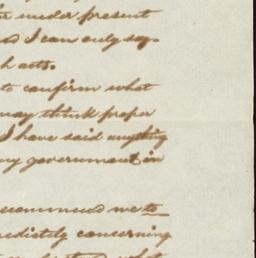 under present
and I can only say
h acts.
to confirm what
may think proper
I have said anything
my government in
recommend me to
mediately concerning
what